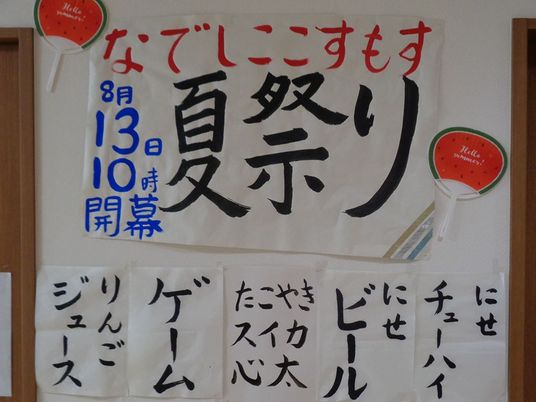 なでしここすもす
夏祭り
8月
13日
10時
開幕
Hello
summer!
Hello
summer!
にせ
チューハイ
にせ
ビール
たこやき
スイカ
心太
ゲーム
りんご
ジュース